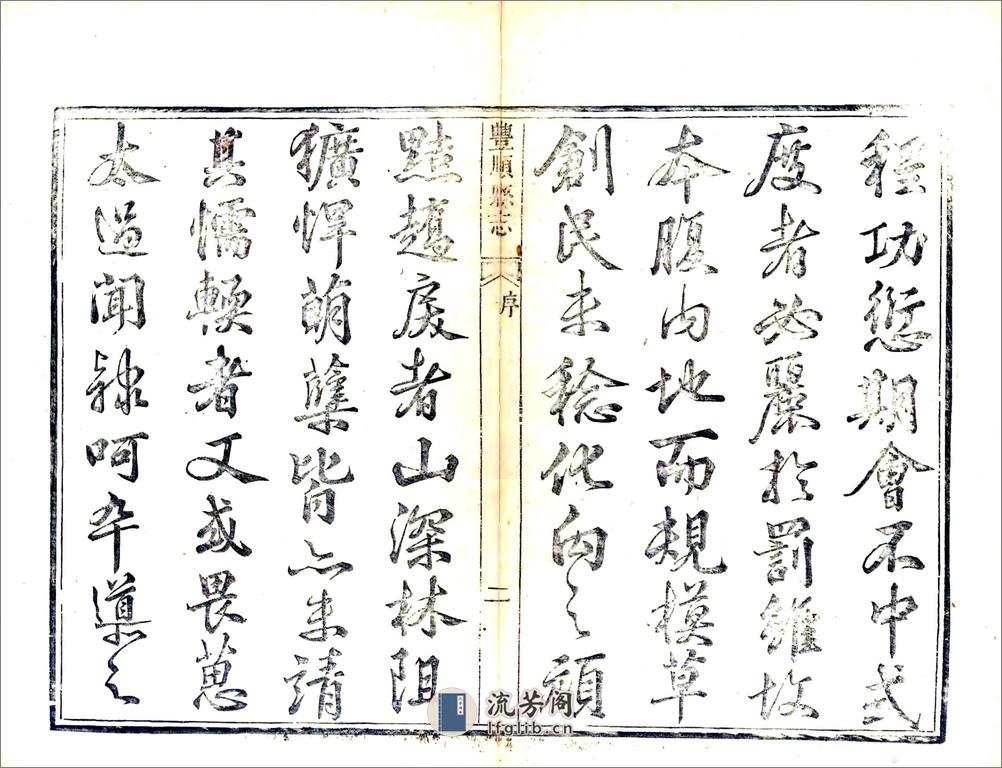 程功愆期會不中式
度者必麗於罰雖故
本腹内地而規模草
創民未稔化向之頑
豐順縣志
序
二
黠趫戾者山深林阻
獷悍萌孽皆亦未靖
其懦輭者又或畏葸
太過聞隸呵卒導之
流芳阁
lfglib.cn